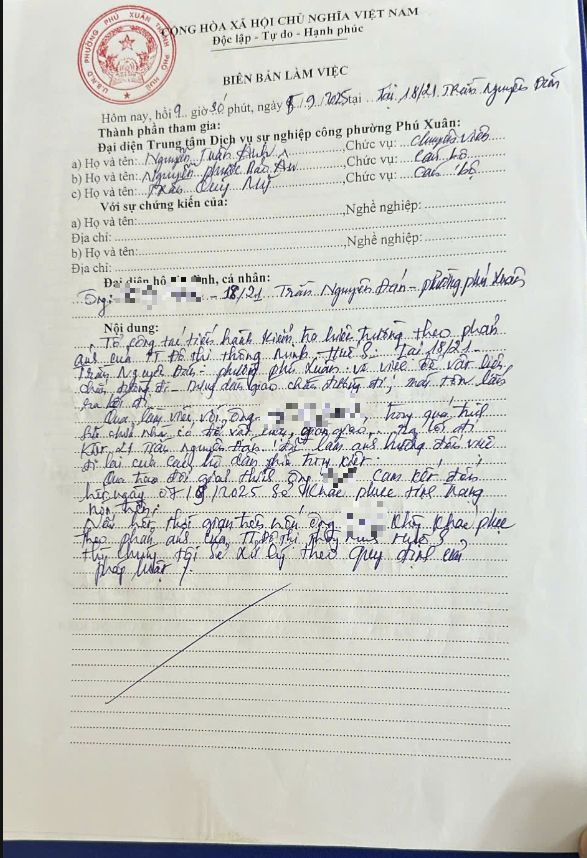 U.B.N.D PHƯỜNG PHÚ XUÂN THÀNH PHỐ HUẾ
CỘNG HÒA XÃ HỘI CHỦ NGHĨA VIỆT NAM
Độc lập - Tự do - Hạnh phúc
BIÊN BẢN LÀM VIỆC
Hôm nay, hồi 9 giờ 30 phút, ngày 5.9.2025 tại Tại 18/21 Trần Nguyên Đán
Thành phần tham gia:
Đại diện Trung tâm Dịch vụ sự nghiệp công phường Phú Xuân:
a) Họ và tên: Nguyễn Tuấn ,Chức vụ: chuyên viên
b) Họ và tên: Nguyễn Phước ,Chức vụ: cán bộ
c) Họ và tên: Trần Quý Mỹ ,Chức vụ: cán bộ
Với sự chứng kiến của:
a) Họ và tên: ,Nghề nghiệp:
Địa chỉ:
b) Họ và tên: ,Nghề nghiệp:
Địa chỉ:
Đại diện hộ gia đình, cá nhân:
Ông: - 18/21 Trần Nguyên Đán - phường phú Xuân
Nội dung:
Tổ công tác tiến hành kiểm tra hiện trường theo phản
ánh của TT Đô thị thông minh - Huế S. Tại 18/21
Trần Nguyên Đán - phường phú Xuân về việc để vật liệu
chắn đường đi - Dựng dàn giáo chắn đường đi, mái tôn lấn
ra lối đi
Qua làm việc với ông , trong quá trình
có để vật liệu, giàn giáo lối đi
Kiệt 21 Trần Nguyên Đán làm ảnh hưởng đến việc
đi lại của các hộ dân phía trong kiệt.
Qua trao đổi giải thích ông cam kết đến
hết ngày 07/9/2025 sẽ khắc phục tình trạng
nói trên.
Nếu hết thời gian trên nếu ông không khắc phục
theo phản ánh của TT Đô thị thông minh Huế S
thì sẽ xử lý theo quy định của
pháp luật